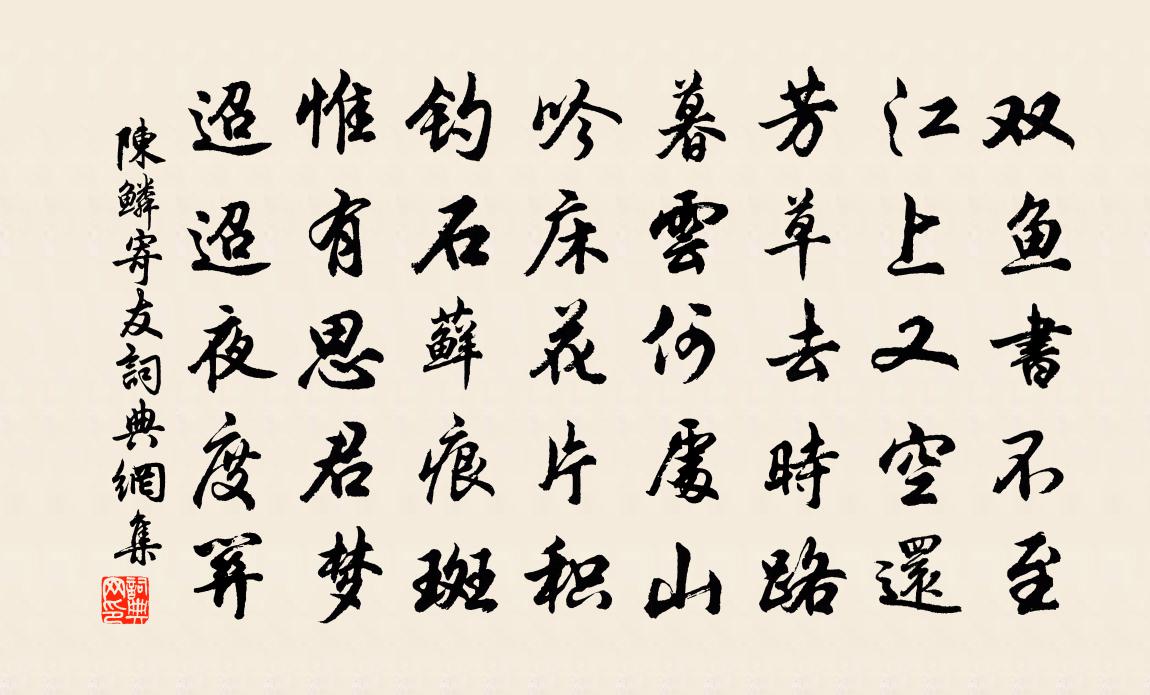 双鱼書不至
江上又空還
芳草去時路
暮雲何處山
吟床花片积
钓石蘚痕斑
惟有思君梦
迢迢夜度関
陳鱗寄友詞典網集
詞典网印